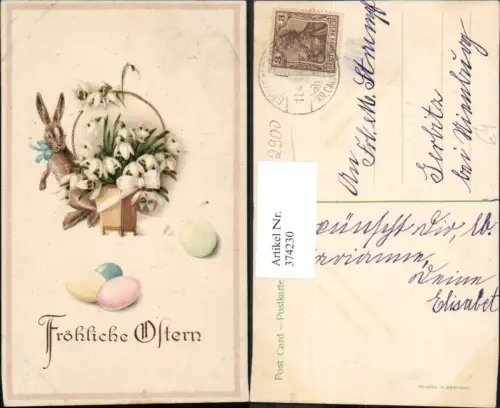 Fröhliche Ostern
3
2900
An Frl. M. Stumpf
Gerbitz
bei Nienburg
wünscht Dir, lb.
Marianne,
Deine
Elisabet
Artikel Nr.
374230
Post Card – Postkarte